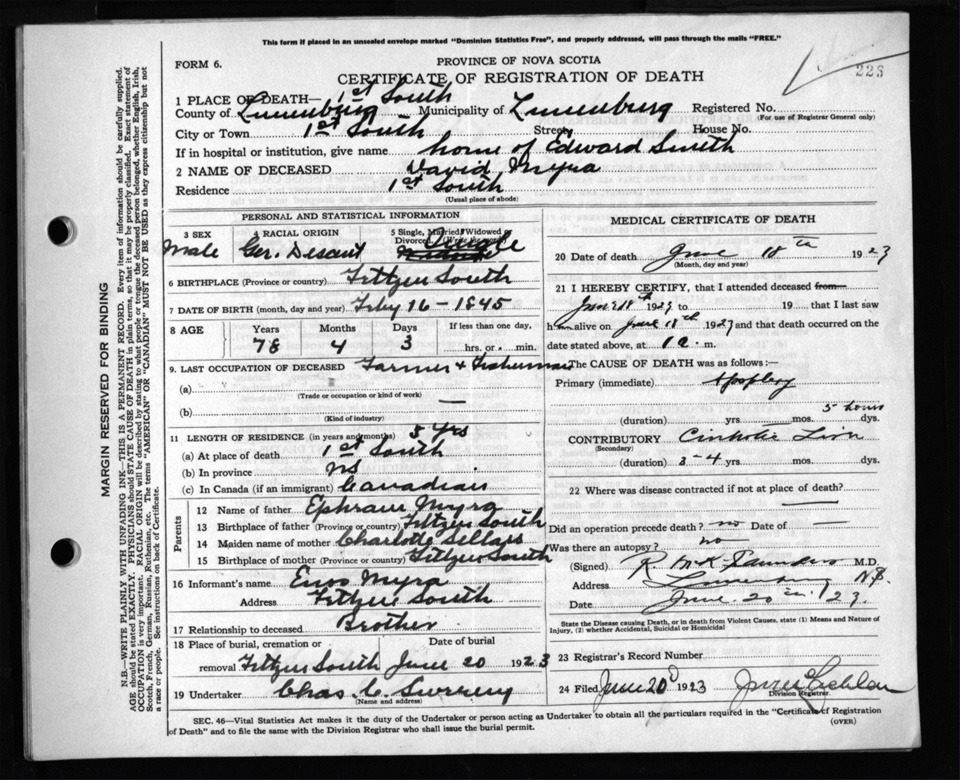 This form if placed in an unsealed envelope marked "Dominion Statistics Free", and properly addressed, will pass through the mails "FREE."
FORM 6.
PROVINCE OF NOVA SCOTIA
226
CERTIFICATE OF REGISTRATION OF DEATH
1 PLACE OF DEATH— 1st South
County of Lunenburg Municipality of Lunenburg Registered No.
(For use of Registrar General only)
City or Town 1st South Street House No.
If in hospital or institution, give name home of Edward Smith
2 NAME OF DECEASED David Myra
Residence 1st South
(Usual place of abode)
PERSONAL AND STATISTICAL INFORMATION
3 SEX 4 RACIAL ORIGIN 5 Single, Married, Widowed or Divorced. (Write the word)
Male Ger. Descent Single
6 BIRTHPLACE (Province or country) Feltzen South
7 DATE OF BIRTH (month, day and year) Feby 16 - 1845
8 AGE Years Months Days If less than one day,
78 4 3 hrs. or min.
9. LAST OCCUPATION OF DECEASED Farmer + Fisherman
(a)
(Trade or occupation or kind of work)
(b) —
(Kind of industry)
11 LENGTH OF RESIDENCE (in years and months) 5 yrs
(a) At place of death 1st South
(b) In province NS
(c) In Canada (if an immigrant) Canadian
Parents
12 Name of father Ephraim Myra
13 Birthplace of father (Province or country) Feltzen South
14 Maiden name of mother Charlotte Sellars
15 Birthplace of mother (Province or country) Feltzen South
16 Informant's name Enos Myra
Address Feltzen South
17 Relationship to deceased Brother
18 Place of burial, cremation or Date of burial
removal Feltzen South June 20 1923
19 Undertaker Chas. C. Sweeny
(Name and address)
MEDICAL CERTIFICATE OF DEATH
20 Date of death June 18th 1923
(Month, day and year)
21 I HEREBY CERTIFY, that I attended deceased from
June 18th 1923 to 19 that I last saw
h im alive on June 18th 1923 and that death occurred on the
date stated above, at 12 m.
The CAUSE OF DEATH was as follows:—
Primary (immediate) Apoplexy
5 hours
(duration) yrs. mos. dys.
CONTRIBUTORY Cirrhotic Liver
(Secondary)
(duration) 3-4 yrs. mos. dys.
22 Where was disease contracted if not at place of death?
—
Did an operation precede death? no Date of —
Was there an autopsy? no
(Signed) R McK Saunders M.D.
Address Lunenburg N.S.
Date June 20th '23.
State the disease causing Death, or in death from Violent Causes, state (1) Means and Nature of Injury, (2) whether Accidental, Suicidal or Homicidal
23 Registrar's Record Number
24 Filed June 20 1923
Division Registrar.
SEC. 46—Vital Statistics Act makes it the duty of the Undertaker or person acting as Undertaker to obtain all the particulars required in the "Certificate of Registration
of Death" and to file the same with the Division Registrar who shall issue the burial permit. (OVER)
MARGIN RESERVED FOR BINDING
N.B.—WRITE PLAINLY WITH UNFADING INK—THIS IS A PERMANENT RECORD. Every item of information should be carefully supplied.
AGE should be stated EXACTLY. PHYSICIANS should STATE CAUSE OF DEATH in plain terms, so that it may be properly classified. Exact statement of
OCCUPATION is very important. RACIAL ORIGIN will be described by stating to what people or tongue the deceased person belonged, whether English, Irish,
Scotch, French, German, Russian, Ruthenian, etc. The terms "AMERICAN" OR "CANADIAN" MUST NOT BE USED as they express citizenship but not
a race or people. See instructions on back of Certificate.